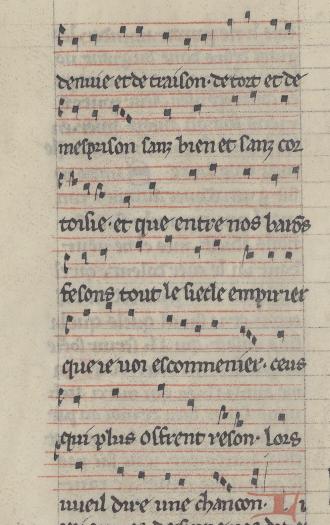 denuie et de traison · de tort et de
mesprison sanz bien et sanz cor
toisie · et que entre nos barōs
fesons tout le siecle empirier
que ie uoi escomenier · ceus
qui plus offrent reson · lors
uueil dire une chancon ·